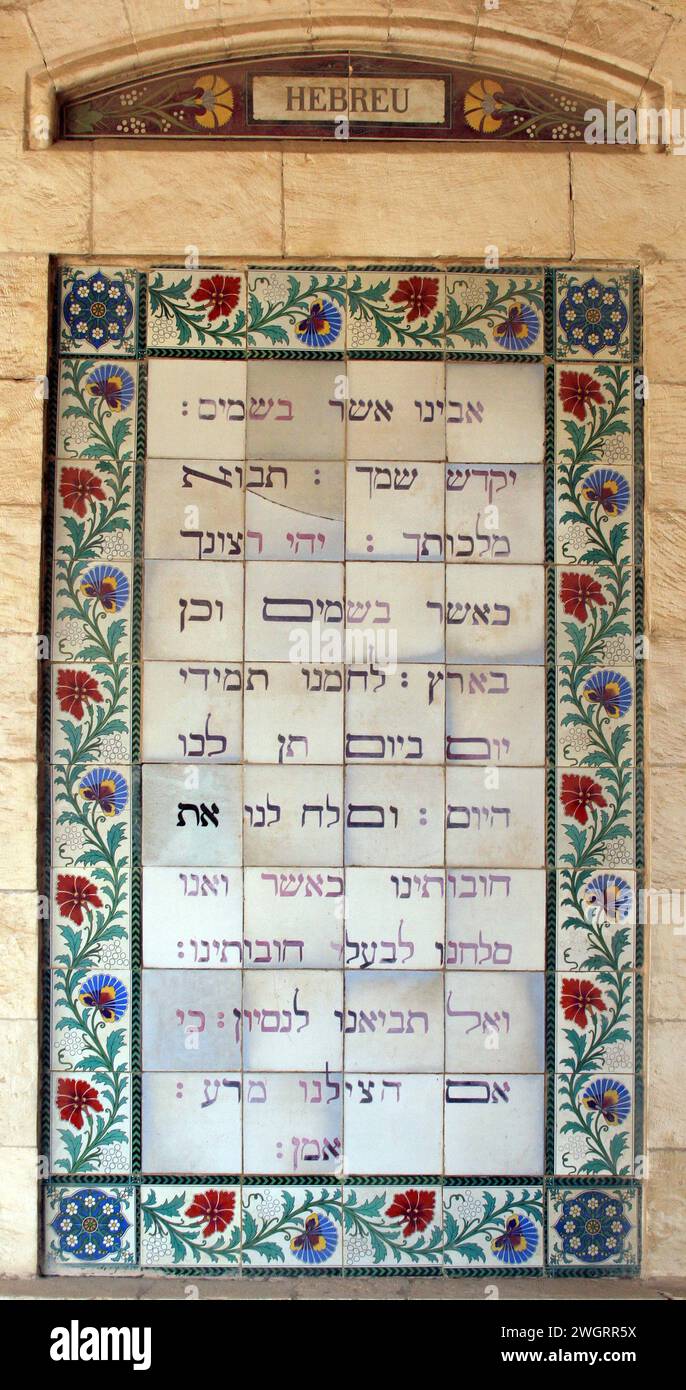 HEBREU
אבינו אשר בשמים:
יקדש שמך : תבוא
מלכותך : יהי רצונך
כאשר בשמים וכן
בארץ : לחמנו תמידי
יום ביום תן לכו
היום : וסלח לנו את
חובותינו כאשר ואנו
סלחנו לבעלי חובותינו:
ואל תביאנו לנסיון: כי
אם הצילנו מרע :
אמן:
alamy
Image ID: 2WGRR5X
www.alamy.com